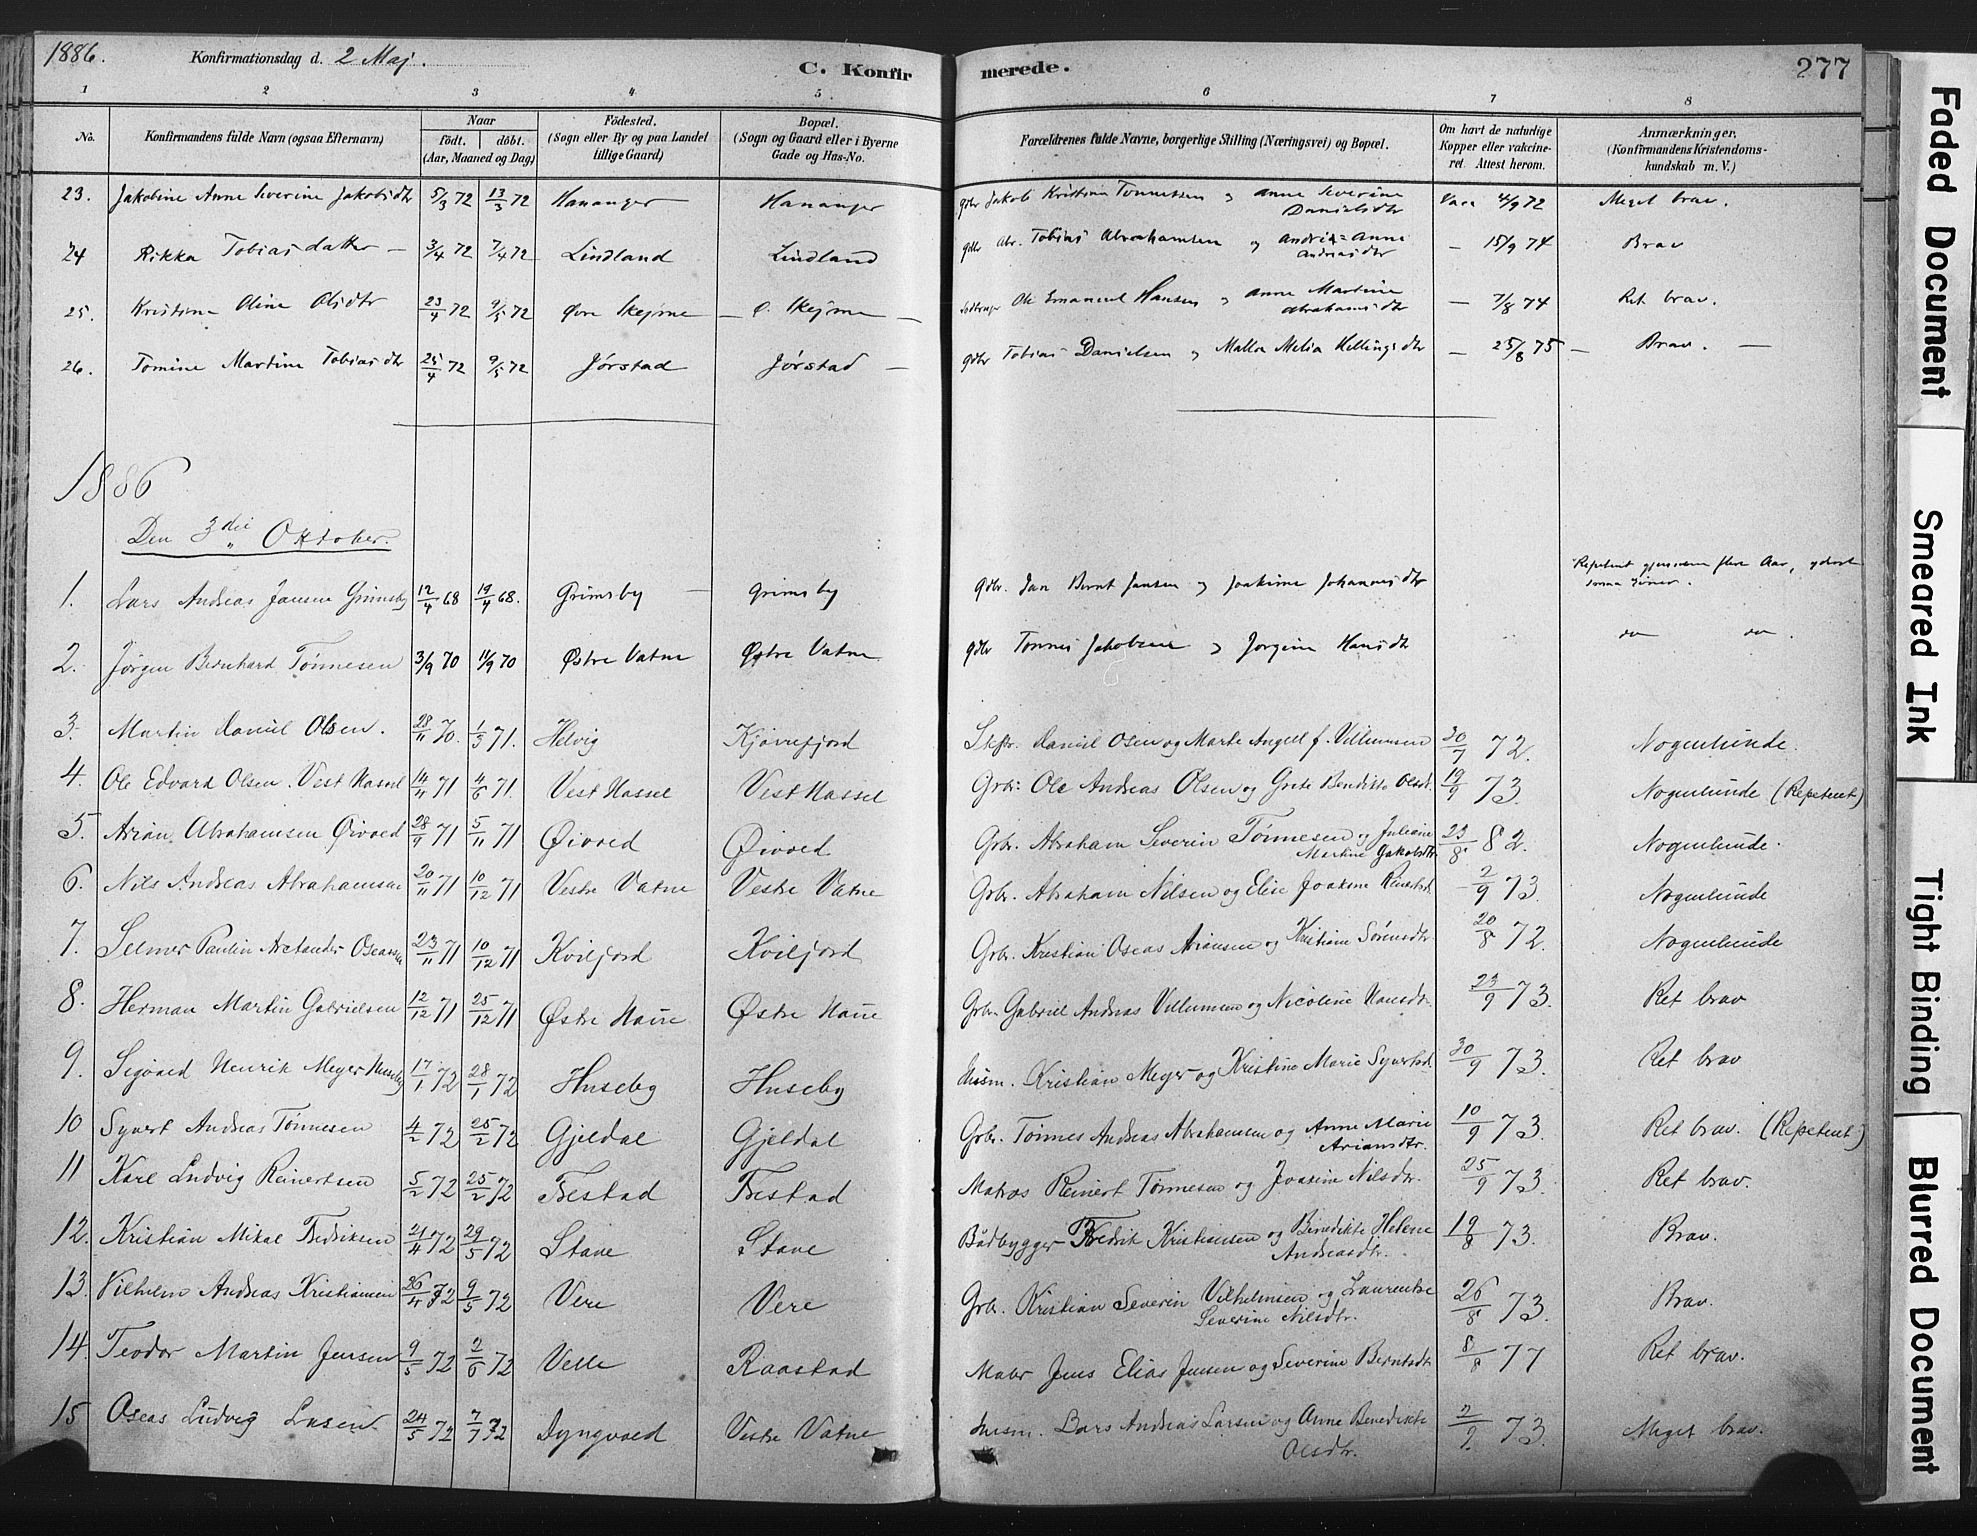 1886. Konfirmationsdag d. 2 Maj. C. Konfirmerede. 277
1 2 3 4 5 6 7 8
No. Konfirmandens fulde Navn (ogsaa Efternavn) Naar födt. döbt. (Aar, Maaned og Dag) Födested. (Sogn eller By og paa Landet tillige Gaard) Bopæl. (Sogn og Gaard eller i Byerne Gade og Hus-No. Forældrenes fulde Navne, borgerlige Stilling (Næringsvei) og Bopæl. Om havt de naturlige Kopper eller vakcineret. Attest herom. Anmærkninger. (Konfirmandens Kristendomskundskab m. V.)
23. Jakobine Anne Severine Jakobsdtr 5/3 72 13/3 72 Hananger Hananger gdbr Jakob Kristian Tønnesen og Anne Severine Danielsdtr Vacc 4/9 72 Meget brav.
24 Rikka Tobiasdatter — 3/4 72 7/4 72 Lindland Lindland gdbr Abr. Tobias Abrahamsen og Andrea Anne Andreasdtr — 15/9 74 Brav
25. Kristine Oline Olsdtr 23/4 72 9/5 72 Øvre Skejme — Ø. Skejme — Ole Emanuel Hansen og Anne Martine Abrahamsdtr — 7/8 74 Ret brav.
26. Tomine Martine Tobiasdtr 25/4 72 9/5 72 Jørstad Jørstad — gdbr Tobias Danielsen og Malla Melia Kellingsdtr — 25/8 75 — Brav. —
1886
Den 3die Oktober.
1. Lars Andreas Jansen Grimsby 12/4 68 19/4 68. Grimsby — Grimsby gdbr. Jan Bernt Jansen og Joakime Johannesdtr Repetent gjennem flere Aar, yderst
2. Jørgen Bernhard Tønnesen 3/9 70 11/9 70 Østre Vatne Østre Vatne gdbr Tønnes Jakobsen og Jorgine Hansdtr do do.
3. Martin Daniel Olsen. 28/11 70. 1/3 71. Helvig Kjørrefjord Daniel Osen og Marte Angell f. Villumsen 20/7 72. Nogenlunde.
4. Ole Edvard Olsen Vest Hassel 14/11 71 4/6 71. Vest Hassel Vest Hassel Grbr: Ole Andreas Olsen og Grete Bendikte Olsdt. 19/9 73. Nogenlunde (Repetent)
5. Arian Abrahamsen Øivoed 28/9 71 5/11 71 Øivoed Øivoed Grbr. Abraham Severin Tønnesen og Juliane Martine Jakobsdtr. 23/8 82. Nogenlunde.
6. Nils Andreas Abrahamsen 20/11 71 10/12 71 Vestre Vatne Vestre Vatne Grbr. Abraham Nilsen og Elise Joakime Reinertsd. 2/9 73. Nogenlunde
7. Selmer Paulin Oseassen 23/11 71 10/12 71 Kviljord Kviljord Grbr. Kristian Oseas Ariansen og Kristiane Sørensdtr. 20/8 72. Nogenlunde
8. Herman Martin Gabrielsen 12/12 71 25/12 71 Østre Haue Østre Haue Grbr. Gabriel Andreas Villumsen og Nicoline Hansdtr. 23/9 73. Ret brav
9. Sigvard Henrik Meyer Huseby 17/1 72 28/1 72 Huseby Huseby Husm. Kristian Meyer og Kristine Marie Syvertsd. 30/9 73. Ret brav
10 Syvert Andreas Tønnesen 4/2 72 25/2 72 Gjeldal Gjeldal Grbr. Tønnes Andreas Abrahamsen og Anne Marie Ariansdtr. 10/9 73. Ret brav. (Repetent.)
11 Karl Ludvig Reinertsen 5/2 72 25/2 72 Trestad Trestad Matros Reinert Tønnesen og Joakine Nilsdtr. 25/9 73. Ret brav.
12. Kristian Mikal Fredriksen 21/4 72 29/5 72 Stave Stave Bådbygger Fredrik Kristiansen og Benedikte Helene Andreasdtr. 19/8 73. Brav.
13. Vilhelm Andreas Kristiansen 26/4 72 9/5 72 Vere Vere Grbr. Kristian Severin Vilhelmsen og Laurentse Severine Nilsdtr. 26/8 73. Brav.
14. Teodor Martin Jensen 9/5 72 2/6 72 Velle Raastad Jens Elias Jensen og Severine Berntsdt. 8/8 77 Ret brav.
15 Oseas Ludvig Larsen 24/5 72 7/7 72 Dyngvoed Vestre Vatne Husm. Lars Andreas Larsen og Anne Benedikte Olsdtr. 2/9 73. Meget brav.
Faded Document
Smeared Ink
Tight Binding
Blurred Document